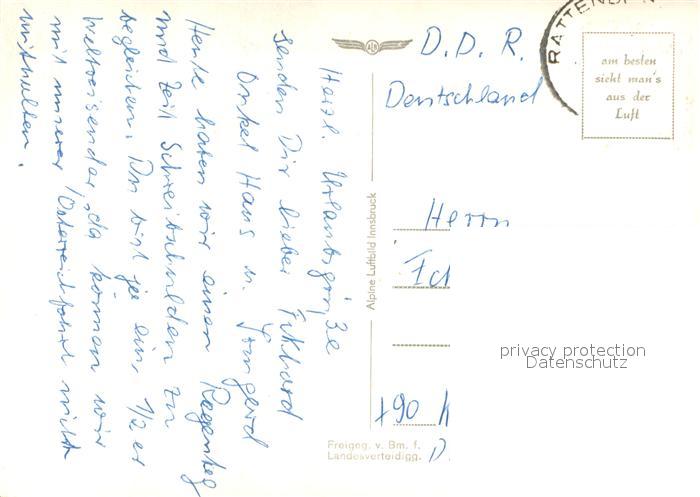 Herzl. Urlaubsgrüße
senden Dir lieber Ekkhard
Onkel Hans u. Irmgard
Heute haben wir einen Regentag
und Zeit Schreibschulden zu
begleichen. Du bist ja ein 1/2 er
Weltreisender, da können wir
mit unserer Österreichfahrt nicht
mithalten.
ALD
Alpine Luftbild Innsbruck
Freigeg. v. Bm. f.
Landesverteidigg.
RATTENB
am besten
sieht man's
aus der
Luft
D. D. R.
Deutschland
Herrn
D.
privacy protection
Datenschutz